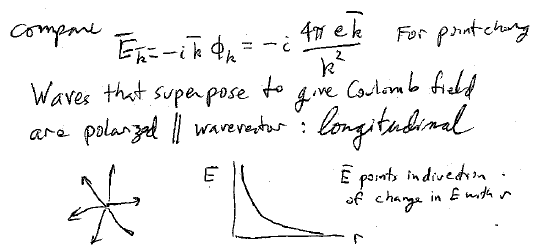 compare E̅_k̅ = -i k̅ ϕ_k = -i 4π e k̅ / k² For point charg
Waves that superpose to give Coulomb field
are polarized ∥ wavevector : longitudinal
E̅ E̅ points in direction
of change in E with r
r